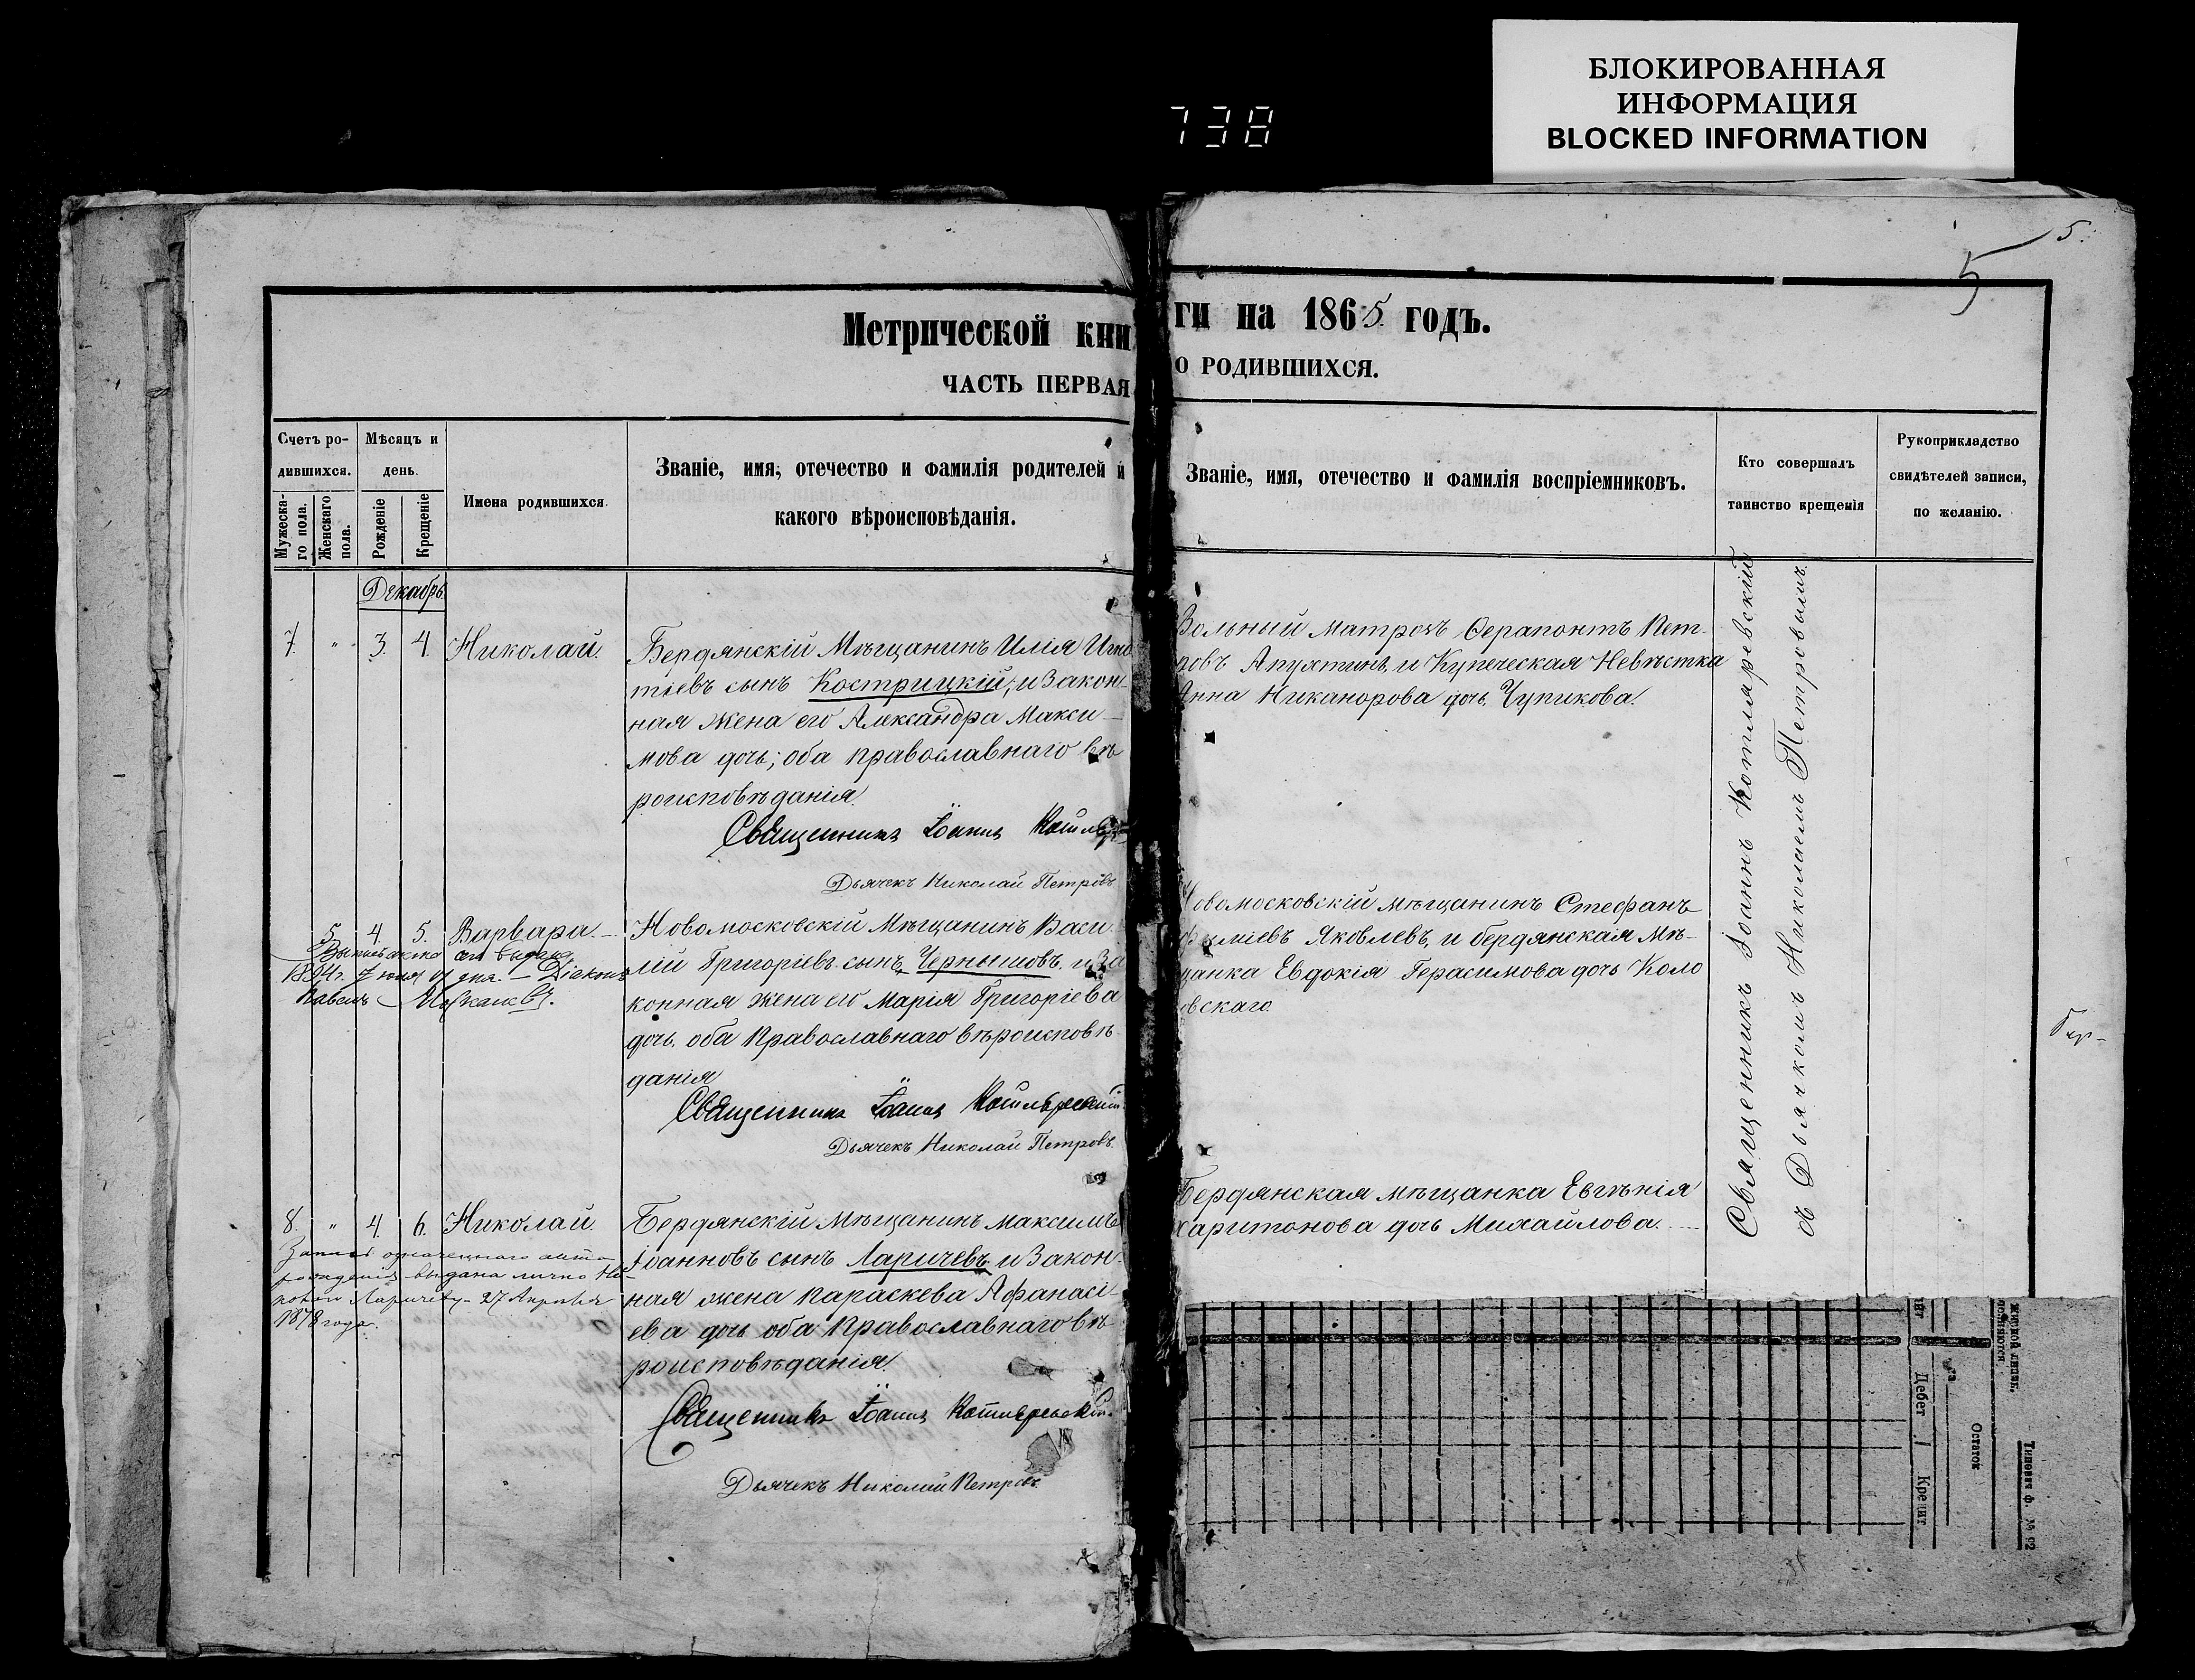 БЛОКИРОВАННАЯ
ИНФОРМАЦИЯ
BLOCKED INFORMATION
738
5.
5
Метрической книги на 1865 годъ.
ЧАСТЬ ПЕРВАЯ О РОДИВШИХСЯ.
Счетъ родившихся.
Мужескаго пола.
Женскаго пола.
Мѣсяцъ и день.
Рожденіе
Крещеніе
Имена родившихся.
Званіе, имя, отечество и фамилія родителей и
какого вѣроисповѣданія.
Званіе, имя, отечество и фамилія воспріемниковъ.
Кто совершалъ
таинство крещенія
Рукоприкладство
свидѣтелей записи,
по желанію.
Декабрь
7. " 3. 4. Николай.
Бердянскій Мѣщанинъ Илія Игна
тіевъ сынъ Кострицкій, и Закон-
ная жена его Александра Макси-
мова дочь; оба православнаго вѣ
роисповѣданія.
Священникъ Іоаннъ
Дьячекъ Николай Петровъ
Вольный матрозъ Ферапонтъ Пет-
ровъ Апухтинъ, и Купеческая Невѣстка
Анна Никанорова дочь Чупикова.
5. 4. 5. Варвара.
1894 г. 7 юня дня. Діаконъ
Павелъ
Новомосковскій Мѣщанинъ Васи
лій Григоріевъ сынъ Чернышовъ, и За
конная жена его Марія Григоріева
дочь. оба Православнаго вѣроисповѣ-
данія
Священникъ Іоаннъ Котляревскій
Дьячекъ Николай Петровъ.
Новомосковскій мѣщанинъ Стефанъ
Яковлевъ, и бердянская Мѣ-
щанка Евдокія Герасимова дочь Коло
вскаго.
8. " 4. 6. Николай.
рожденія выдана лично Ни-
колаю Ларичеву 27 Апрѣля
1878 года.
Бердянскій Мѣщанинъ Максимъ
Іоанновъ сынъ Ларичевъ и Закон-
ная жена Параскева Афанасі-
ева дочь оба Православнаго вѣ
роисповѣданія.
Священникъ Іоаннъ Котляревскій
Дьячекъ Николай Петровъ
Бердянская мѣщанка Евгенія
Харитонова дочь Михайлова.
Священникъ Іоаннъ Котляревскій
съ Дьячкомъ Николаемъ Петровымъ.
Дебет
Кредит
Остаток